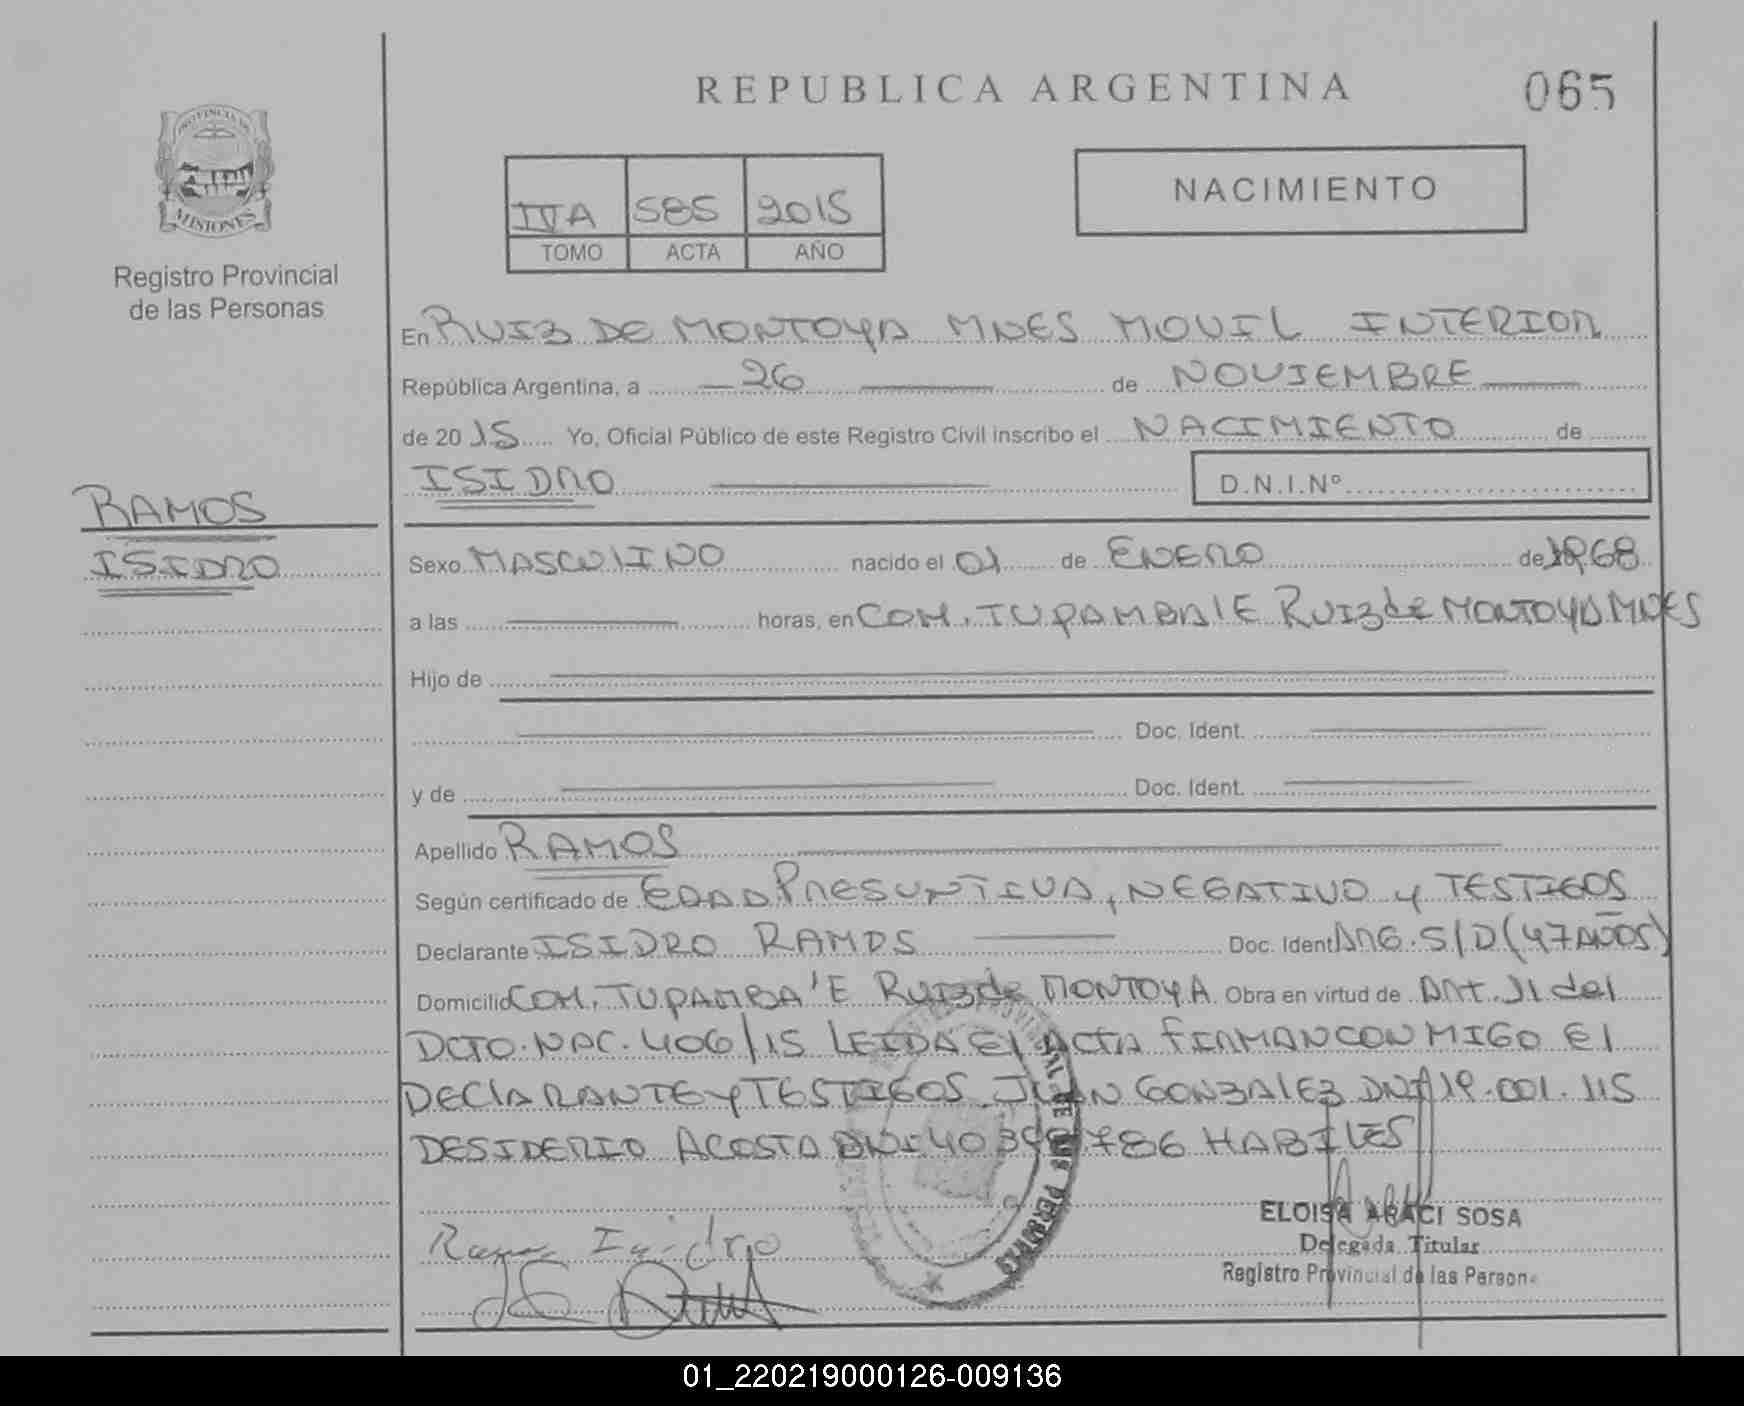 REPUBLICA ARGENTINA
065
PROVINCIA DE
MISIONES
Registro Provincial
de las Personas
IVA 585 2015
TOMO ACTA AÑO
NACIMIENTO
En RUIZ DE MONTOYA MNES MOVIL INTERIOR
República Argentina, a 26 de NOVIEMBRE
de 20 15 Yo, Oficial Público de este Registro Civil inscribo el NACIMIENTO de
ISIDRO
D.N.I.Nº
RAMOS
ISIDRO
Sexo MASCULINO nacido el 01 de ENERO de 1968
a las horas, en COM. TUPAMBA'E RUIZ de MONTOYA MNES
Hijo de
Doc. Ident.
y de Doc. Ident.
Apellido RAMOS
Según certificado de EDAD PRESUNTIVA, NEGATIVO y TESTIGOS
Declarante ISIDRO RAMOS Doc. Ident ARG. S/D (47 AÑOS)
Domicilio COM. TUPAMBA'E RUIZ de MONTOYA Obra en virtud de ART. 11 del
DCTO. NAC. 406/15 LEIDA El ACTA FIRMAN CON MIGO El
DECLARANTE y TESTIGOS JUAN GONZALEZ DNI 19.001.115
DESIDERIO ACOSTA DNI 40 786 HABILES
Isidro
ELOISA ARACI SOSA
Delegada Titular
Registro Provincial de las Person
01_220219000126-009136